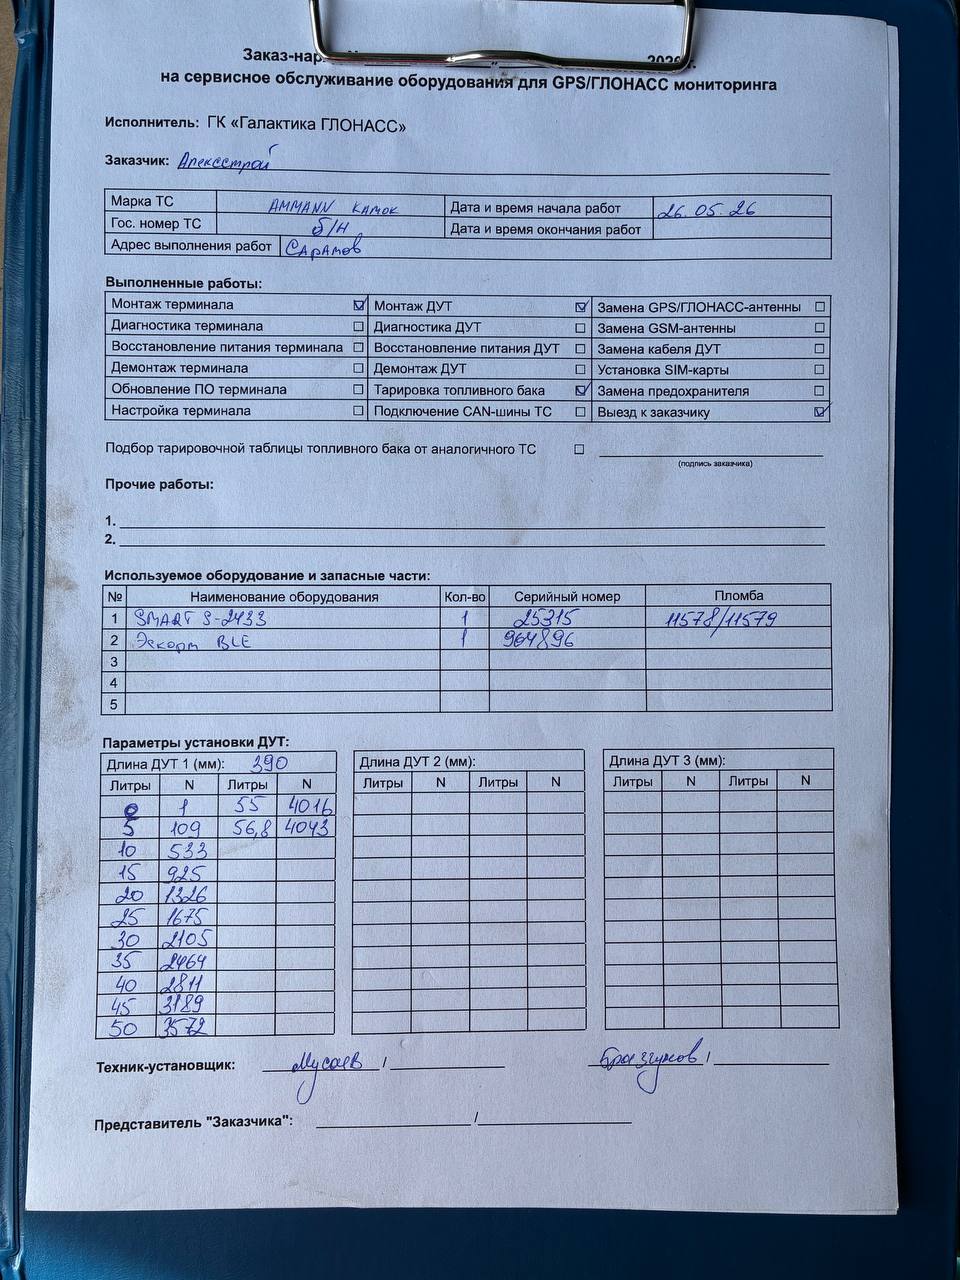 Заказ-нар
на сервисное обслуживание оборудования для GPS/ГЛОНАСС мониторинга
Исполнитель: ГК «Галактика ГЛОНАСС»
Заказчик: Алексстрой
Марка ТС AMMANN каток Дата и время начала работ 26.05.26
Гос. номер ТС б/н Дата и время окончания работ
Адрес выполнения работ Саратов
Выполненные работы:
Монтаж терминала ☑ Монтаж ДУТ ☑ Замена GPS/ГЛОНАСС-антенны ☐
Диагностика терминала ☐ Диагностика ДУТ ☐ Замена GSM-антенны ☐
Восстановление питания терминала ☐ Восстановление питания ДУТ ☐ Замена кабеля ДУТ ☐
Демонтаж терминала ☐ Демонтаж ДУТ ☐ Установка SIM-карты ☐
Обновление ПО терминала ☐ Тарировка топливного бака ☑ Замена предохранителя ☐
Настройка терминала ☐ Подключение CAN-шины ТС ☐ Выезд к заказчику ☑
Подбор тарировочной таблицы топливного бака от аналогичного ТС ☐
(подпись заказчика)
Прочие работы:
1.
2.
Используемое оборудование и запасные части:
№ Наименование оборудования Кол-во Серийный номер Пломба
1 SMART S-2433 1 25315 11578/11579
2 Эскорт BLE 1 964896
3
4
5
Параметры установки ДУТ:
Длина ДУТ 1 (мм): 390 Длина ДУТ 2 (мм): Длина ДУТ 3 (мм):
Литры N Литры N Литры N Литры N Литры N Литры N
0 1 55 4016
5 109 56,8 4043
10 533
15 925
20 1326
25 1675
30 2105
35 2464
40 2811
45 3189
50 3572
Техник-установщик: Мусаев / Бразгунов /
Представитель "Заказчика": /